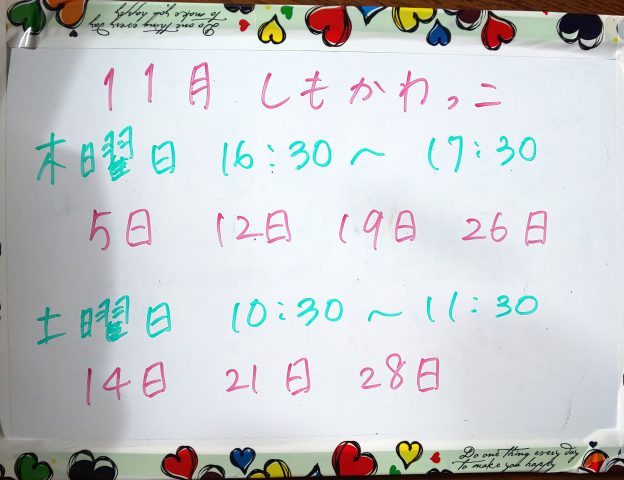 Do one thing every day
to make you happy
Do one thing every day
to make you happy
11月 しもかわっこ
木曜日 16:30～ 17:30
5日 12日 19日 26日
土曜日 10:30～11:30
14日 21日 28日
Do one thing every day
to make you happy